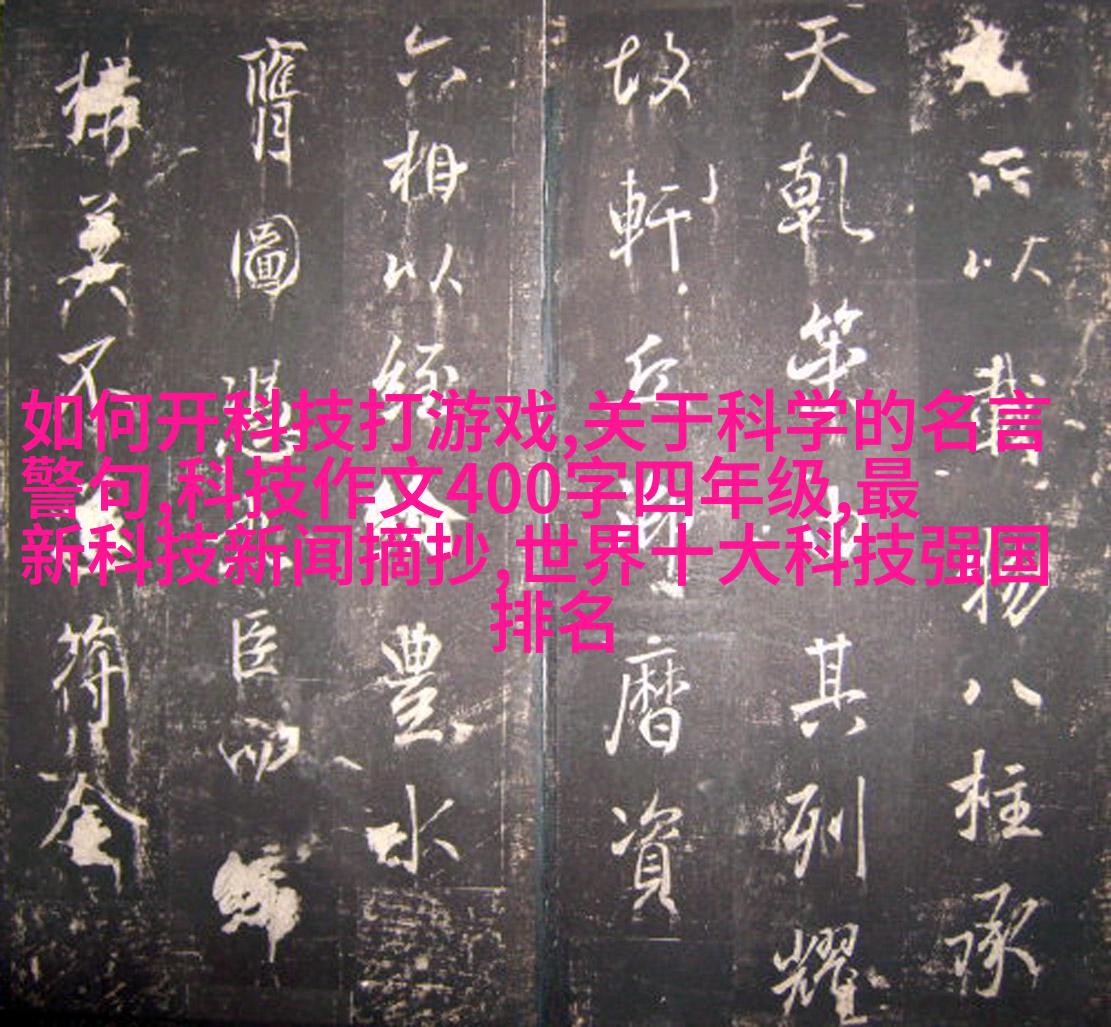 如何开科技打游戏,关于科学的名言
警句,科技作文400字四年级,最
新科技新闻摘抄,世界十大科技强国
排名
所以揚八柱承
天乾其列耀
故軒丘曆資
六相以經豐水
膺圖臣
構美不符全